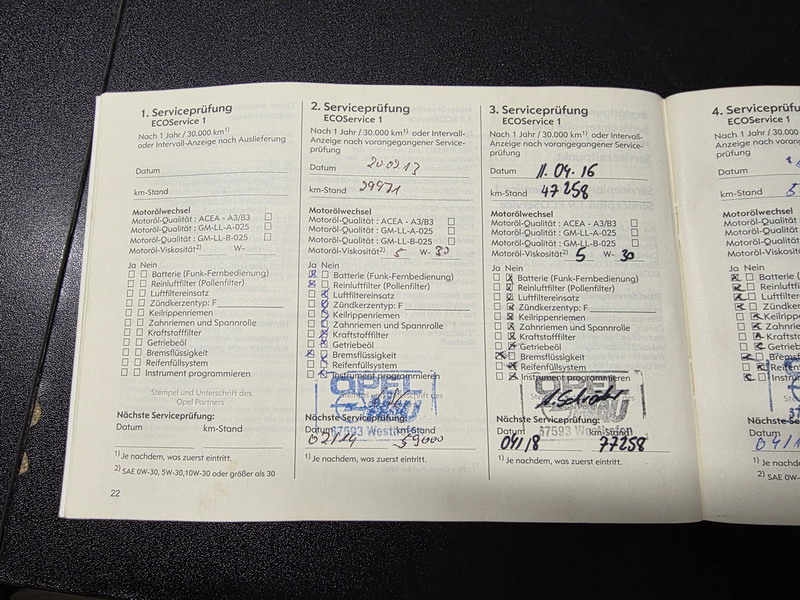 1. Serviceprüfung
ECOService 1
Nach 1 Jahr / 30.000 km1)
oder Intervall-Anzeige nach Auslieferung
Datum
km-Stand
Motorölwechsel
Motoröl-Qualität : ACEA - A3/B3
Motoröl-Qualität : GM-LL-A-025
Motoröl-Qualität : GM-LL-B-025
Motoröl-Viskosität2) W-
Ja Nein
Batterie (Funk-Fernbedienung)
Reinluftfilter (Pollenfilter)
Luftfiltereinsatz
Zündkerzentyp: F
Keilrippenriemen
Zahnriemen und Spannrolle
Kraftstofffilter
Getriebeöl
Bremsflüssigkeit
Reifenfüllsystem
Instrument programmieren
Stempel und Unterschrift des
Opel Partners
Nächste Serviceprüfung:
Datum km-Stand
1) Je nachdem, was zuerst eintritt.
2) SAE 0W-30, 5W-30,10W-30 oder größer als 30
22
2. Serviceprüfung
ECOService 1
Nach 1 Jahr / 30.000 km1) oder Intervall-
Anzeige nach vorangegangener Service-
prüfung
Datum
km-Stand 29971
Motorölwechsel
Motoröl-Qualität : ACEA - A3/B3
Motoröl-Qualität : GM-LL-A-025
Motoröl-Qualität : GM-LL-B-025
Motoröl-Viskosität2) 5 W- 30
Ja Nein
Batterie (Funk-Fernbedienung)
Reinluftfilter (Pollenfilter)
Luftfiltereinsatz
Zündkerzentyp: F
Keilrippenriemen
Zahnriemen und Spannrolle
Kraftstofffilter
Getriebeöl
Bremsflüssigkeit
Reifenfüllsystem
Instrument programmieren
OPEL
Nächste Serviceprüfung:
67593 Westhofen
Datum km-Stand
02/14 59000
1) Je nachdem, was zuerst eintritt.
3. Serviceprüfung
ECOService 1
Nach 1 Jahr / 30.000 km1) oder Intervall-
Anzeige nach vorangegangener Service-
prüfung
Datum 11.04.16
km-Stand 47258
Motorölwechsel
Motoröl-Qualität : ACEA - A3/B3
Motoröl-Qualität : GM-LL-A-025
Motoröl-Qualität : GM-LL-B-025
Motoröl-Viskosität2) 5 W- 30
Ja Nein
Batterie (Funk-Fernbedienung)
Reinluftfilter (Pollenfilter)
Luftfiltereinsatz
Zündkerzentyp: F
Keilrippenriemen
Zahnriemen und Spannrolle
Kraftstofffilter
Getriebeöl
Bremsflüssigkeit
Reifenfüllsystem
Instrument programmieren
OPEL
Nächste Serviceprüfung:
67593 Westhofen
Datum km-Stand
04/18 77258
1) Je nachdem, was zuerst eintritt.
4. Serviceprüfu
ECOService 1
Nach 1 Jahr / 30.0
Anzeige nach vor
prüfung
Datum
km-Stand 5
Motorölwechsel
Motoröl-Qualität
Motoröl-Qualität
Motoröl-Qualität
Motoröl-Viskosit
Ja Nein
Batterie
Reinluft
Luftfilter
Zündke
Keilripp
Zahnrie
Kraftsto
Getrieb
Bremsfl
Reifenf
Instru
Nächste Se
Datum
1) Je nachdem,
2) SAE 0W-